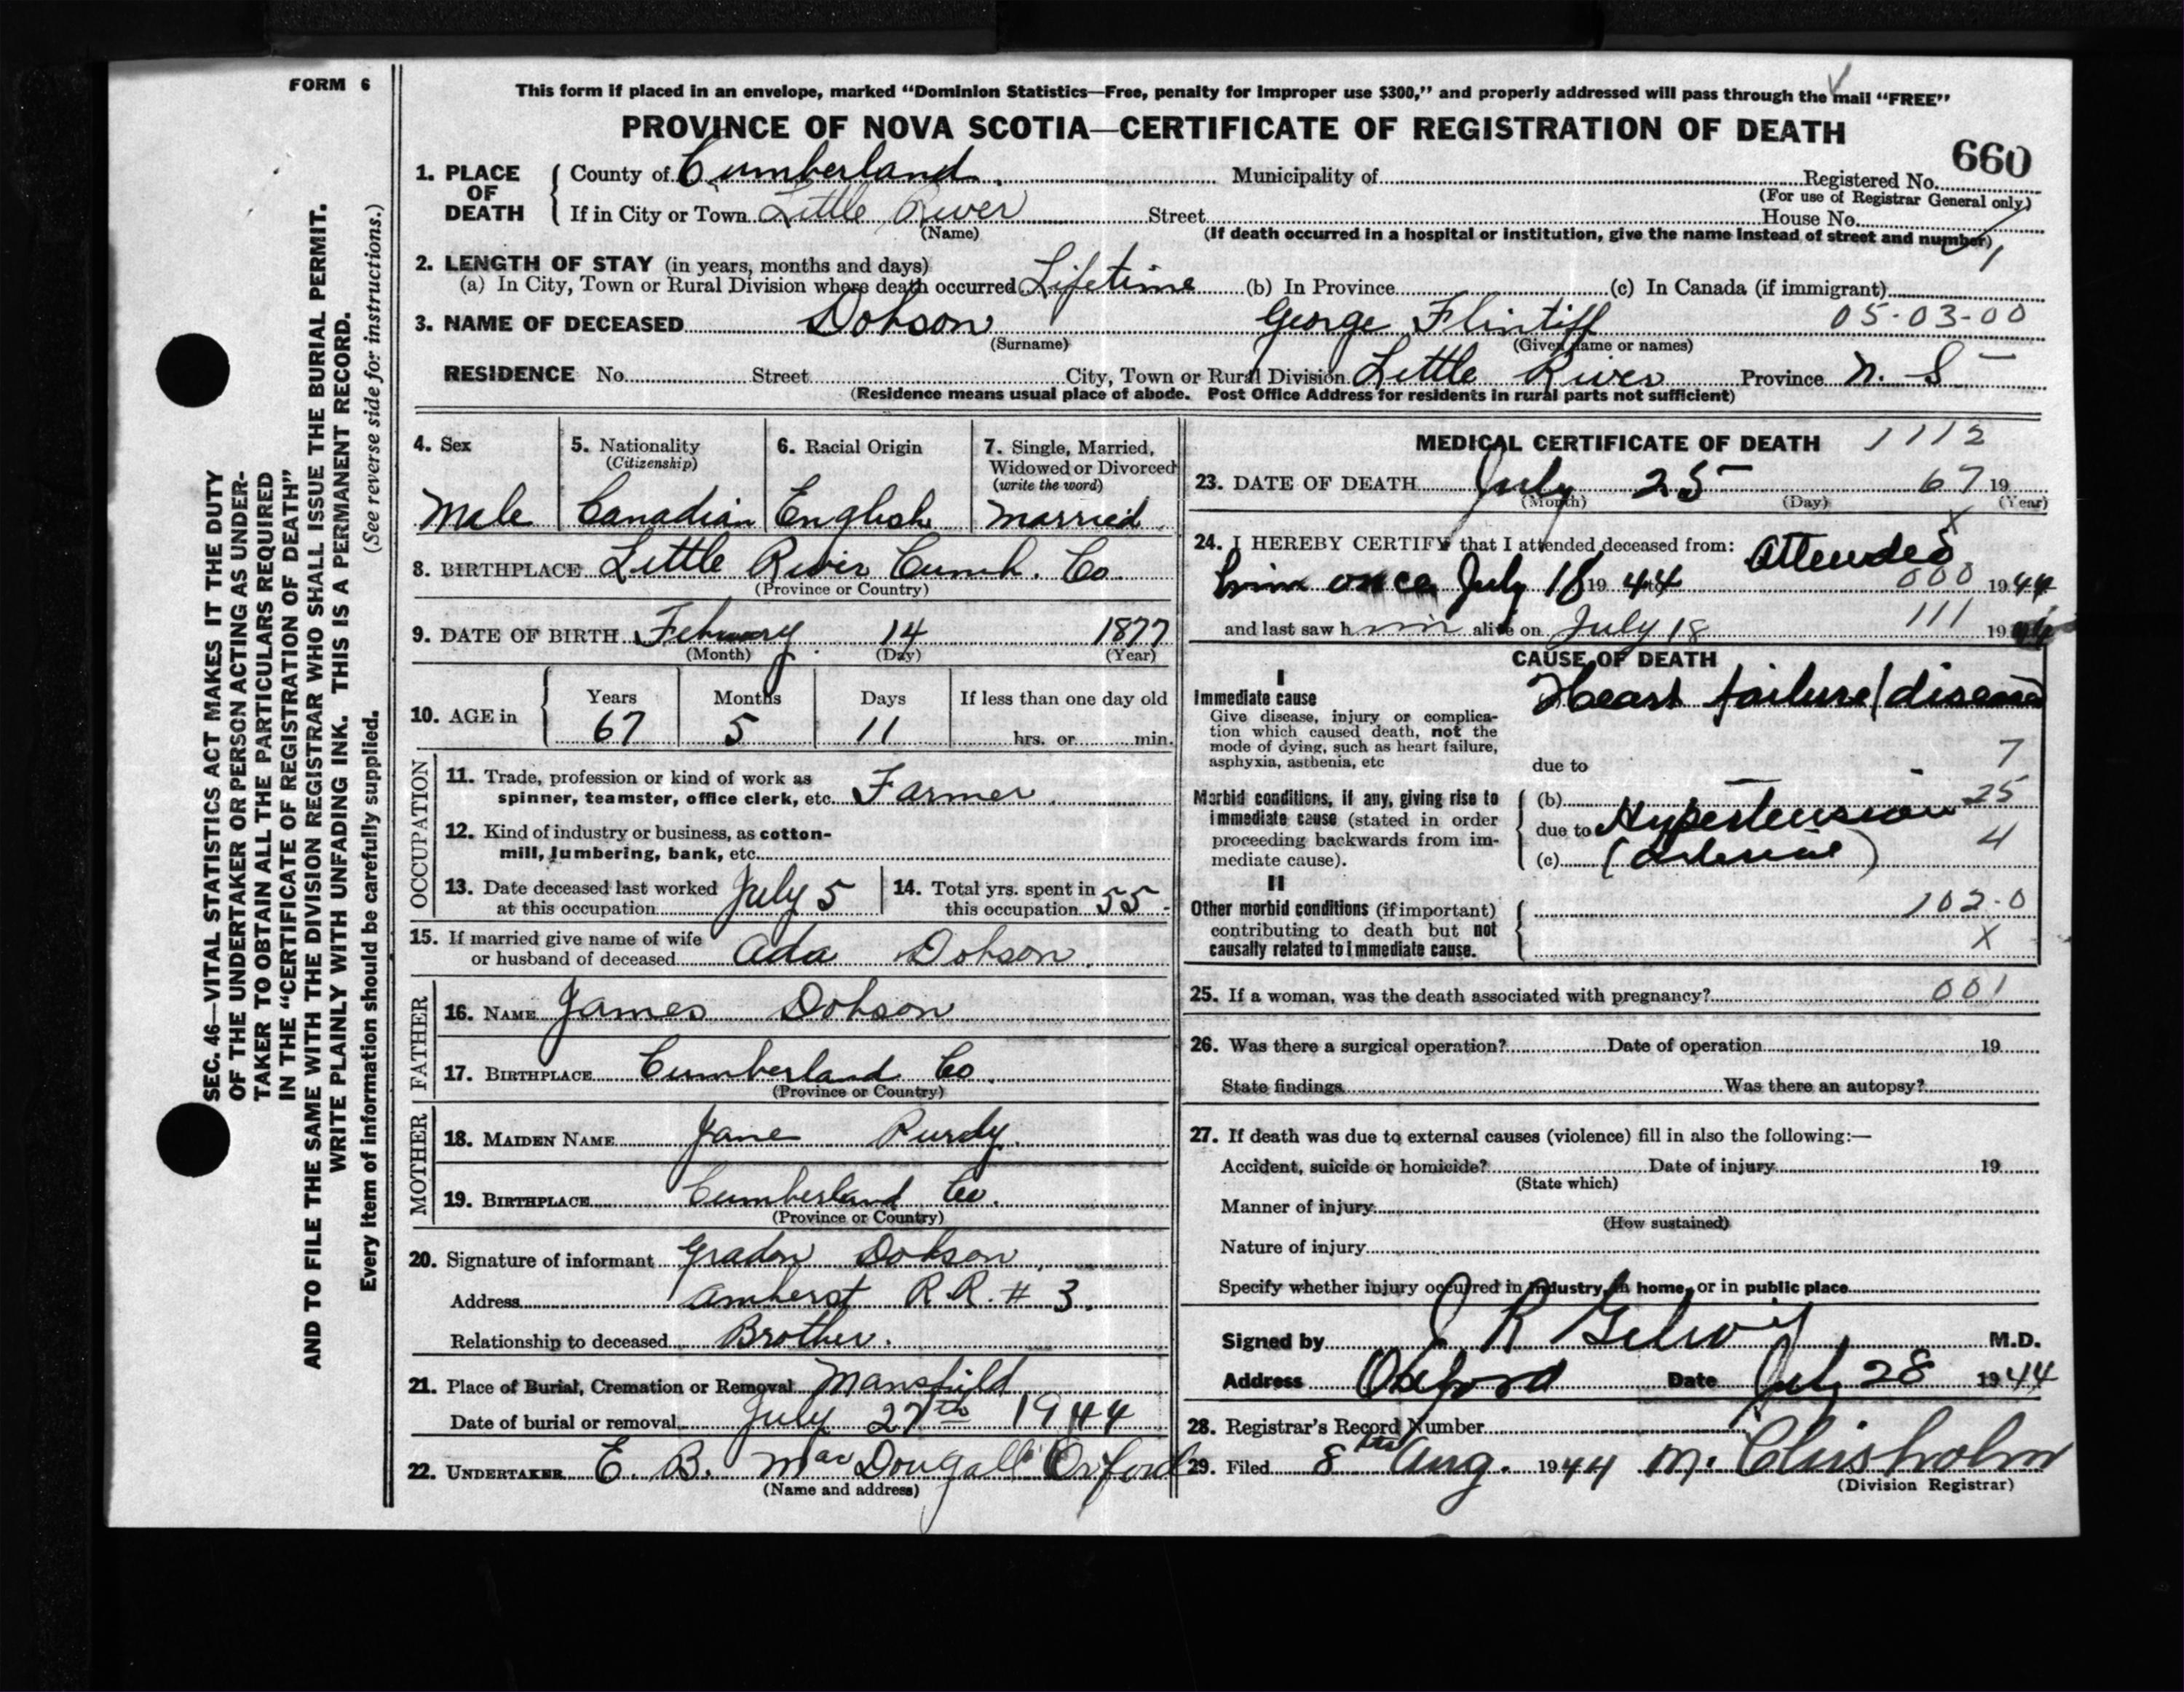 FORM 6
SEC. 46—VITAL STATISTICS ACT MAKES IT THE DUTY
OF THE UNDERTAKER OR PERSON ACTING AS UNDER-
TAKER TO OBTAIN ALL THE PARTICULARS REQUIRED
IN THE "CERTIFICATE OF REGISTRATION OF DEATH"
AND TO FILE THE SAME WITH THE DIVISION REGISTRAR WHO SHALL ISSUE THE BURIAL PERMIT.
WRITE PLAINLY WITH UNFADING INK. THIS IS A PERMANENT RECORD.
Every item of information should be carefully supplied. (See reverse side for instructions.)
This form if placed in an envelope, marked "Dominion Statistics—Free, penalty for improper use $300," and properly addressed will pass through the mail "FREE"
PROVINCE OF NOVA SCOTIA—CERTIFICATE OF REGISTRATION OF DEATH
660
1. PLACE OF DEATH
County of Cumberland Municipality of Registered No.
(For use of Registrar General only)
If in City or Town Little River Street House No.
(Name) (If death occurred in a hospital or institution, give the name instead of street and number)
2. LENGTH OF STAY (in years, months and days)
(a) In City, Town or Rural Division where death occurred Lifetime (b) In Province (c) In Canada (if immigrant)
3. NAME OF DECEASED Dobson George Flintiff 05-03-00
(Surname) (Given name or names)
RESIDENCE No. Street City, Town or Rural Division Little River Province N. S.
(Residence means usual place of abode. Post Office Address for residents in rural parts not sufficient)
4. Sex
Male
5. Nationality
(Citizenship)
Canadian
6. Racial Origin
English
7. Single, Married,
Widowed or Divorced
(write the word)
Married
8. BIRTHPLACE Little River Cumb. Co.
(Province or Country)
9. DATE OF BIRTH February 14 1877
(Month) (Day) (Year)
10. AGE in
Years Months Days If less than one day old
67 5 11 hrs. or min.
OCCUPATION
11. Trade, profession or kind of work as
spinner, teamster, office clerk, etc. Farmer
12. Kind of industry or business, as cotton-
mill, lumbering, bank, etc.
13. Date deceased last worked
at this occupation July 5
14. Total yrs. spent in
this occupation 55
15. If married give name of wife
or husband of deceased Ada Dobson
FATHER
16. NAME James Dobson
17. BIRTHPLACE Cumberland Co
(Province or Country)
MOTHER
18. MAIDEN NAME Jane Purdy
19. BIRTHPLACE Cumberland Co.
(Province or Country)
20. Signature of informant Gradon Dobson
Address Amherst R.R. # 3.
Relationship to deceased Brother.
21. Place of Burial, Cremation or Removal Mansfield
Date of burial or removal July 27th 1944
22. UNDERTAKER E. B. MacDougall Oxford
(Name and address)
MEDICAL CERTIFICATE OF DEATH 1112
23. DATE OF DEATH July 25 67 19
(Month) (Day) (Year)
24. I HEREBY CERTIFY that I attended deceased from: Attended
him once July 18 19 44 000 1944
and last saw h im alive on July 18 111 19 44
CAUSE OF DEATH
I
Immediate cause
Give disease, injury or complica-
tion which caused death, not the
mode of dying, such as heart failure,
asphyxia, asthenia, etc
Heart failure/disease
7
due to
Morbid conditions, if any, giving rise to
immediate cause (stated in order
proceeding backwards from im-
mediate cause).
(b) 25
due to Hypertension
4
(c) (arterial)
II
Other morbid conditions (if important)
contributing to death but not
causally related to immediate cause.
102-0
X
25. If a woman, was the death associated with pregnancy? 001
26. Was there a surgical operation? Date of operation 19
State findings Was there an autopsy?
27. If death was due to external causes (violence) fill in also the following:—
Accident, suicide or homicide? Date of injury 19
(State which)
Manner of injury
(How sustained)
Nature of injury
Specify whether injury occurred in industry, in home, or in public place
Signed by J R Gilroy M.D.
Address Oxford Date July 28 1944
28. Registrar's Record Number
29. Filed 8th Aug. 1944 M. Chisholm
(Division Registrar)